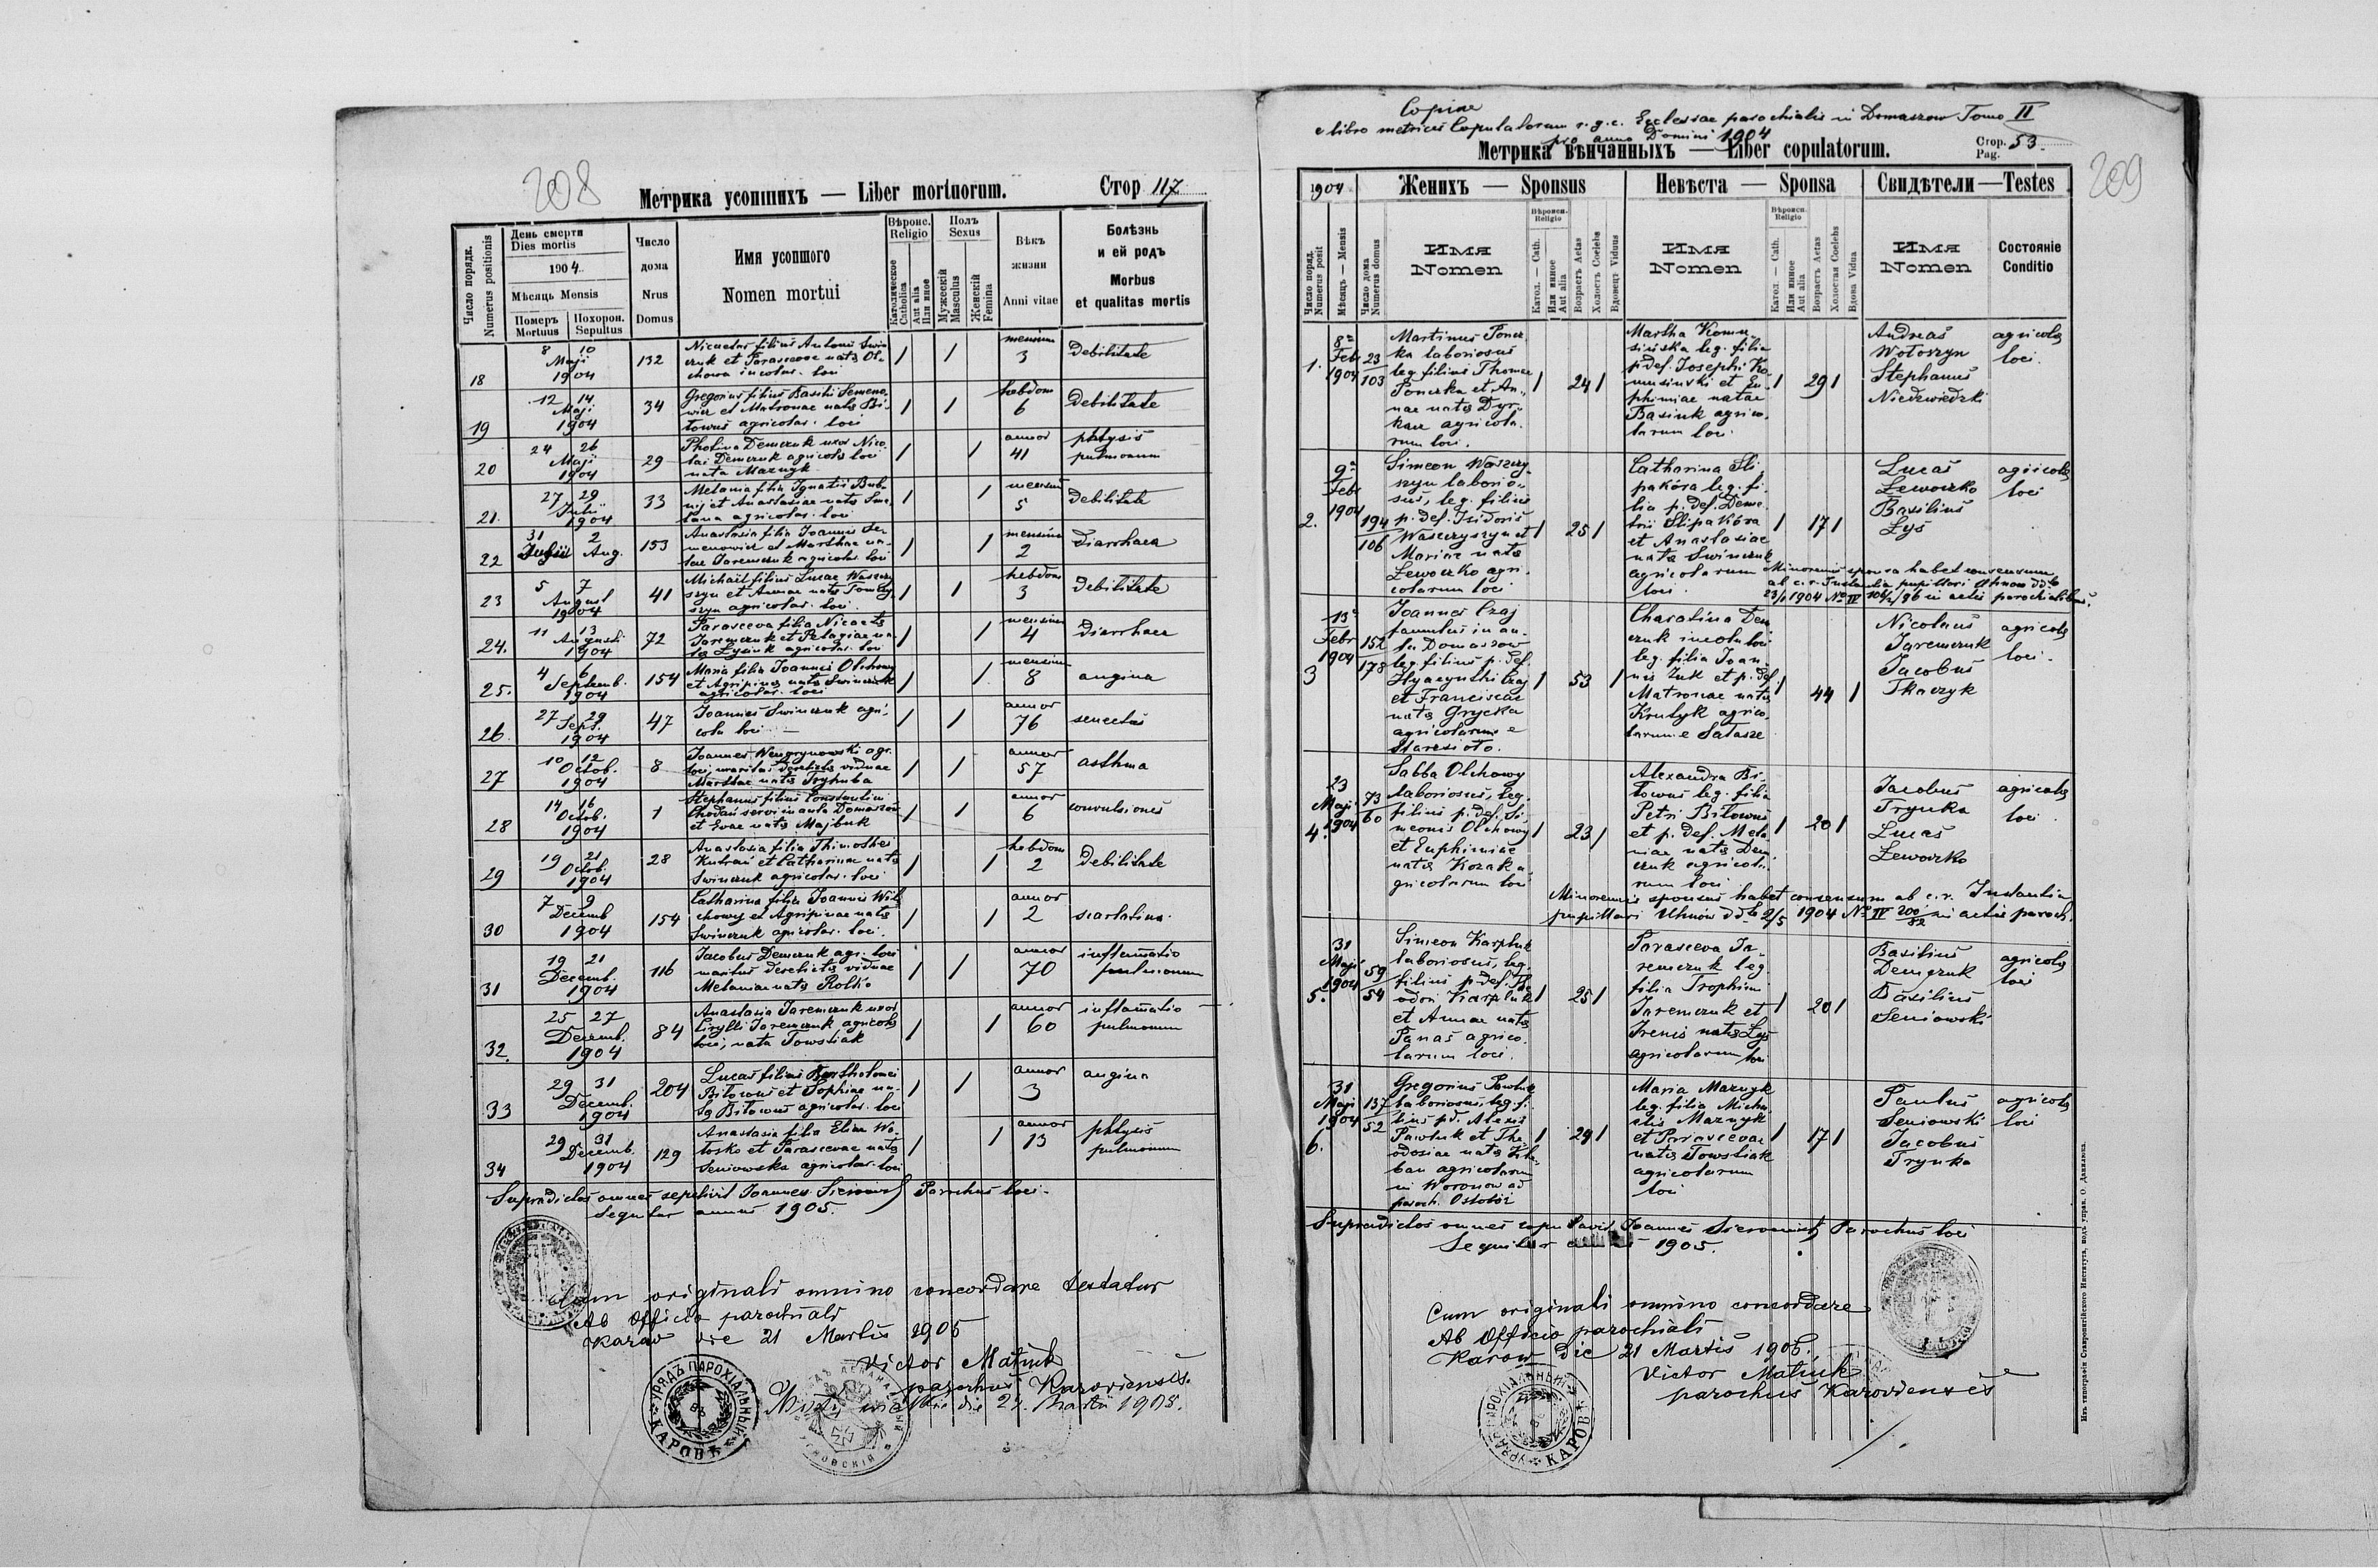 208
Метрика усопшихъ — Liber mortuorum.
Стор 117
Число порядк.
Numerus positionis
День смерти
Dies mortis
1904.
Мѣсяць Mensis
Померъ
Mortuus
Похорон.
Sepultus
Число
дома
Nrus
Domus
Имя усопшого
Nomen mortui
Вѣроис.
Religio
Католическое
Catholica
Или иное
Aut alia
Полъ
Sexus
Мужескій
Masculus
Женскій
Femina
Вѣкъ
жизни
Anni vitae
Болѣзнь
и ей родъ
Morbus
et qualitas mortis
18
8 10
Maji
1904
132
Nicaetas filius Antonii Swin
czuk et Parascevae nata Ol-
chowa incolar. loci
mensium
3
debilitate
19
12 14
Maji
1904
34
Gregorius filius Basilii Semeno
wicz et Matronae nata Bi-
towus agricolar. loci
hebdom
6
debilitate
20
24 26
Maji
1904
29
Photina Demczuk uxor Nico
lai Demczuk agricola loci
nata Maznyk
annor
41
phtysis
pulmonum
21.
27 29
Julii
1904
33
Melania filia Ignatii Bub-
nij et Anastasiae nata
agricolar. loci
mensium
5
debilitate
22
31 2
Julii Aug.
153
Anastasia filia Joannis Se
menowicz et Marthae na-
tae Jaremczuk agricolar. loci
mensium
2
diarrhaea
23
5 7
August
1904
41
Michael filius Lucae Waszczy
szyn et Annae nata
szyn agricolar. loci.
hebdom
3
debilitate
24.
11 13
Augusti
1904
72
Parasceva filia Nicaeta
Jaremczuk et Pelagiae na-
ta Łysiuk agricolar. loci
mensium
4
diarrhaea
25.
4 6
Septemb.
1904
154
Maria filia Joannis Olchowy
et Agripinae nata Swinczuk
agricolar. loci
mensium
8
angina
26
27 29
Sept.
1904
47
Joannes Swinczuk agri-
cola loci —
annor
76
senectus
27
10 12
Octob.
1904
8
Joannes Wengrynowski agr.
loci, maritus derelicta viduae
Marthae nata Tryhuba
annor
57
asthma
28
14 16
Octob.
1904
1
Stephanus filius Constantini
Chodań servi in aula Domaszów
et Evae nata Majbuk
annor
6
convulsiones
29
19 21
Octob.
1904
28
Anastasia filia Thimothei
Kutrań et Catharinae nata
Swinczuk agricolar. loci
hebdom
2
debilitate
30
7 9
Decemb
1904
154
Catharina filia Joannis
chowy et Agripinae nata
Swinczuk agricolar. loci.
annor
2
scarlatina
31
19 21
Decemb.
1904
116
Jacobus Demczuk agr. loci
maritus derelicta viduae
Melaniae nata Rolko
annor
70
inflamatio
pulmonum
32.
25 27
Decemb.
1904
84
Anastasia Jaremczuk uxor
Cirylli Jaremczuk agricola
loci, nata Towstiak
annor
60
inflamatio
pulmonum
33
29 31
Decemb.
1904
204
Lucas filius Bartholomei
Bitowus et Sophiae na-
ta Bitowus agricolar. loci
annor
3
angina
34
29 31
Decemb.
1904
129
Anastasia filia Eliae Wo-
łoszko et Parascevae nata
Seniowska agricolar. loci
annor
13
phtysis
pulmonum
Supradictos omnes sepelivit Joannes Sieniewicz Parochus loci.
Sequitur annus 1905.
Cum originali omnino concordare testatur
Ab Officio parochiali
Karów die 21 Martii 1905
Victor Matiuk
parochus Karoviensis.
УРЯДЪ ПАРОХІАЛЬНЫЙ КАРОВЪ
Copiae
e libro metrices Copulatorum r. g. c. Ecclesiae parochialis in Domaszow Tomo II
pro anno Domini 1904
Метрика вѣнчанныхъ — Liber copulatorum.
Стор.
Pag. 53
209
1904
Женихъ — Sponsus
Невѣста — Sponsa
Свидѣтели — Testes
Число поряд.
Numerus posit
Мѣсяць — Mensis
Число дома
Numerus domus
Имя
Nomen
Вѣроисп.
Religio
Катол. — Cath.
Или иное
Aut alia
Возрастъ Aetas
Холостъ Coelebs
Вдовецъ Viduus
Имя
Nomen
Вѣроисп.
Religio
Катол. — Cath.
Или иное
Aut alia
Возрастъ Aetas
Холостая Coelebs
Вдова Vidua
Имя
Nomen
Состояніе
Conditio
1.
8a
Febr
1904
23
103
Martinus Poncz
ka laboriosus
leg. filius Thomae
Ponczka et An-
nae nata Dyr-
kacz agricola-
rum loci.
24
Martha Komu-
sińska leg. filia
p. def. Josephi Ko
musiński et Eu-
phimiae natae
Basiuk agrico-
larum loci
29
Andreas
Wołoszyn
Stephanus
Niedzwiedzki
agricola
loci.
2.
9a
Febr
1904
194
106
Simeon Waszczy
szyn laborio-
sus, leg. filius
p. def. Isidoris
Waszczyszyn et
Mariae nata
Lewoczko agri-
colarum loci
25
Catharina Sli
pakóra leg. fi-
lia p. def. Deme-
trii Slipakóra
et Anastasiae
nata Swinczuk
agricolarum
loci.
17
Lucas
Lewoczko
Basilius
Łyś
agricola
loci
Minorennis sponsa habet consensum
ab c. r. Instantia pupillari Uhnow ddto
23/1 1904 No IV 106/4/96 in actis parochialibus.
3
13a
Febr
1904
152
178
Joannes Czaj
famulus in au-
la Domaszow
leg. filius p. def.
Hyacynthi Czaj
et Franciscae
nata Grycka
agricolarum e
Staresioło.
53
Charatina Dem
czuk incola loci
leg. filia Joan-
nis Żuk et p. def.
Matronae nata
Krutyk agrico-
larum e Sałasze
44
Nicolaus
Jaremczuk
Jacobus
Tkaczyk
agricola
loci.
4.
23
Maji
1904
73
60
Sabba Olchowy
laboriosus, leg.
filius p. def. Si-
meonis Olchowy
et Euphimiae
nata Kozak a-
gricolarum loci
23
Alexandra Bi-
towus leg. filia
Petri Bitowus
et p. def. Mela
niae nata Dem
czuk agricola-
rum loci
20
Jacobus
Trynka
Lucas
Lewoczko
agricola
loci
Minorennis sponsus habet consensum ab c. r. Instantia
pupillari Uhnów ddto 2/5 1904 No IV 200/82 in actis paroch.
5.
31
Maji
1904
59
54
Simeon Karpluk
laboriosus, leg.
filius p. def. The
odori Karpluk
et Annae nata
Panas agrico-
larum loci.
25
Parasceva Ja-
remczuk leg.
filia Trophim
Jaremczuk et
Irenis nata Łyś
agricolarum loci
20
Basilius
Demczuk
Basilius
Seniowski
agricola
loci
6.
31
Maji
1904
137
52
Gregorius Pawluk
laboriosus, leg. fi-
lius p. d. Alexii
Pawluk et The-
odosiae nata
ban agricolarum
in Woronow ad
paroch. Ostobóz
29
Maria Maznyk
leg. filia Micha
elis Maznyk
et Parascevae
nata Towstiak
agricolarum
loci
17
Paulus
Seniowski
Jacobus
Trynka
agricola
loci
Supradictos omnes copulavit Joannes Sieniewicz Parochus loci
Sequitur annus 1905.
Cum originali omnino concordare
Ab Officio parochiali
Karow die 21 Martis 1905.
Victor Matiuk
parochus Karoviensis
УРЯДЪ ПАРОХІАЛЬНЫЙ КАРОВЪ
Изъ типографіи Ставропигійского Института, подъ управ. О. Данилюка.